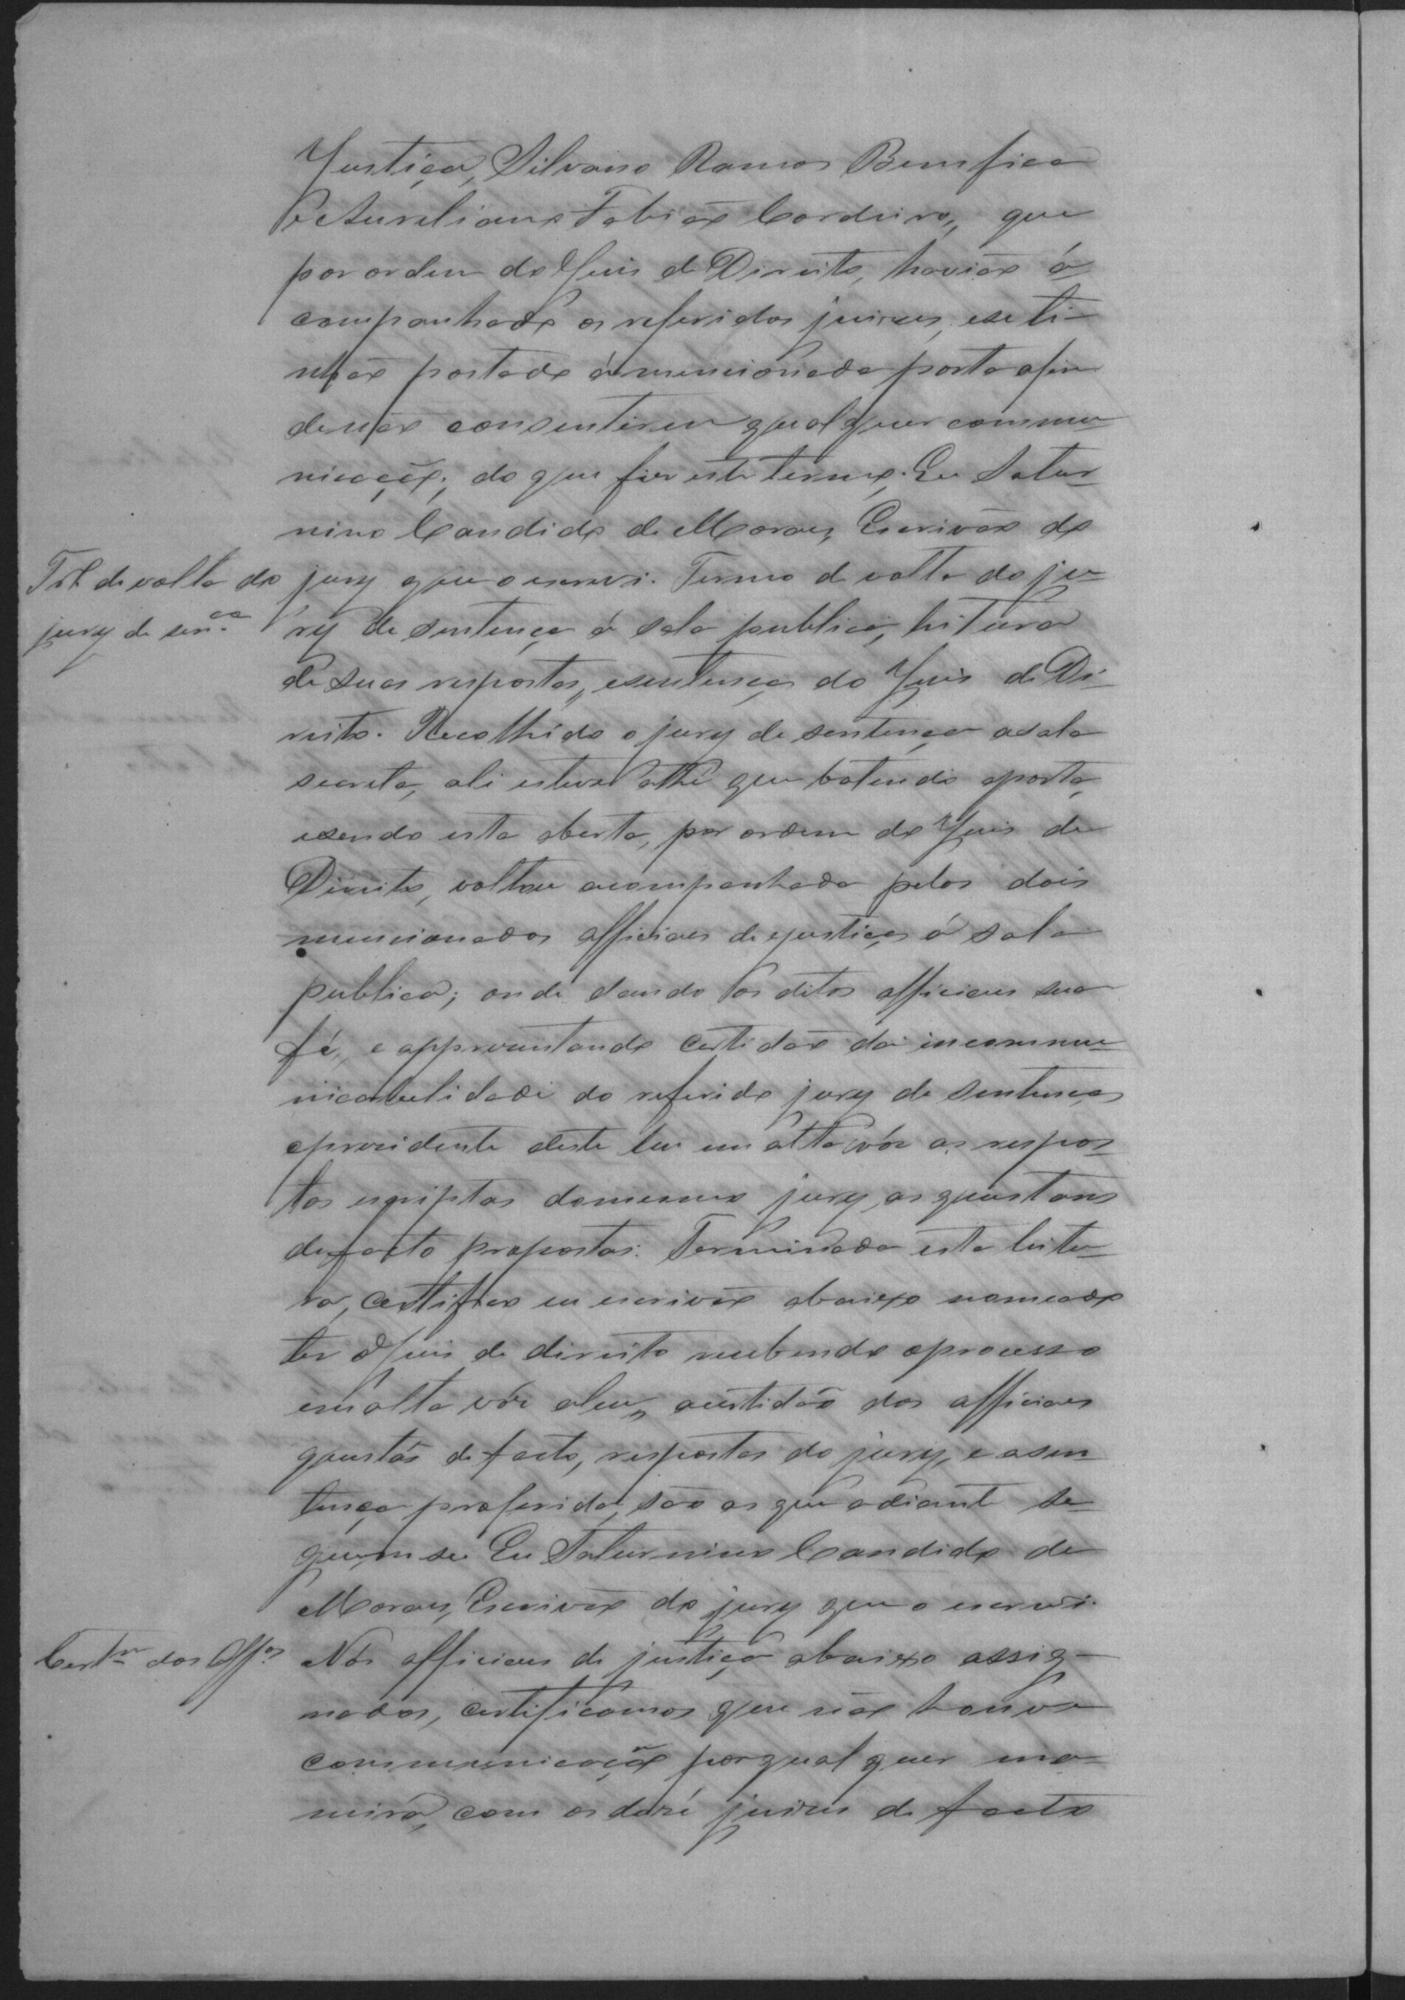 Justiça, Silvano Ramos Bemfica
e Aureliano Fabião Cordeiro, que
por ordem do Juis de Direito, havião á
companhado os referidos juises, e se ti-
nhão postado á mencionada porta afim
de não consentirem qualquer commu
nicação; do que fiz este termo. Eu Satur
nino Candido de Moraes, Escrivão do
Tr.º de volta do
jury de senª.
jury que o escrevi. Termo de volta do ju
ry de sentença á sala publica, leitura
de suas respostas, e sentença do Juis de Di-
reito. Recolhido o jury de sentença a sala
secreta, ali esteve athé que batendo a porta,
e sendo esta aberta, por ordem do Juis de
Direito, voltou acompanhado pelos dois
mencionados officiaes de justiça á sala
publica; onde dando os ditos officiaes sua
fé, e appresentando certidão da incommu
nicabilidade do referido jury de sentença
o presidente deste leu em alta vóz as respos
tas escriptas do mesmo jury, as questoens
de facto propostas. Terminada esta leitu
ra, certifico eu escrivão abaixo nomeado
ter o Juis de direito recebendo o processo
em alta vóz a leu, certidão dos officiaes
questões de facto, respostas do jury, e a sen
tença proferida, são as que adiante se
guem se. Eu Saturnino Candido de
Moraes, Escrivão do jury que o escrevi.
Certm dos Offes
Nós officiaes de justiça abaixo assig-
nados, certificamos que não houve
communicação por qual quer ma
neira, com os doze juizes de facto